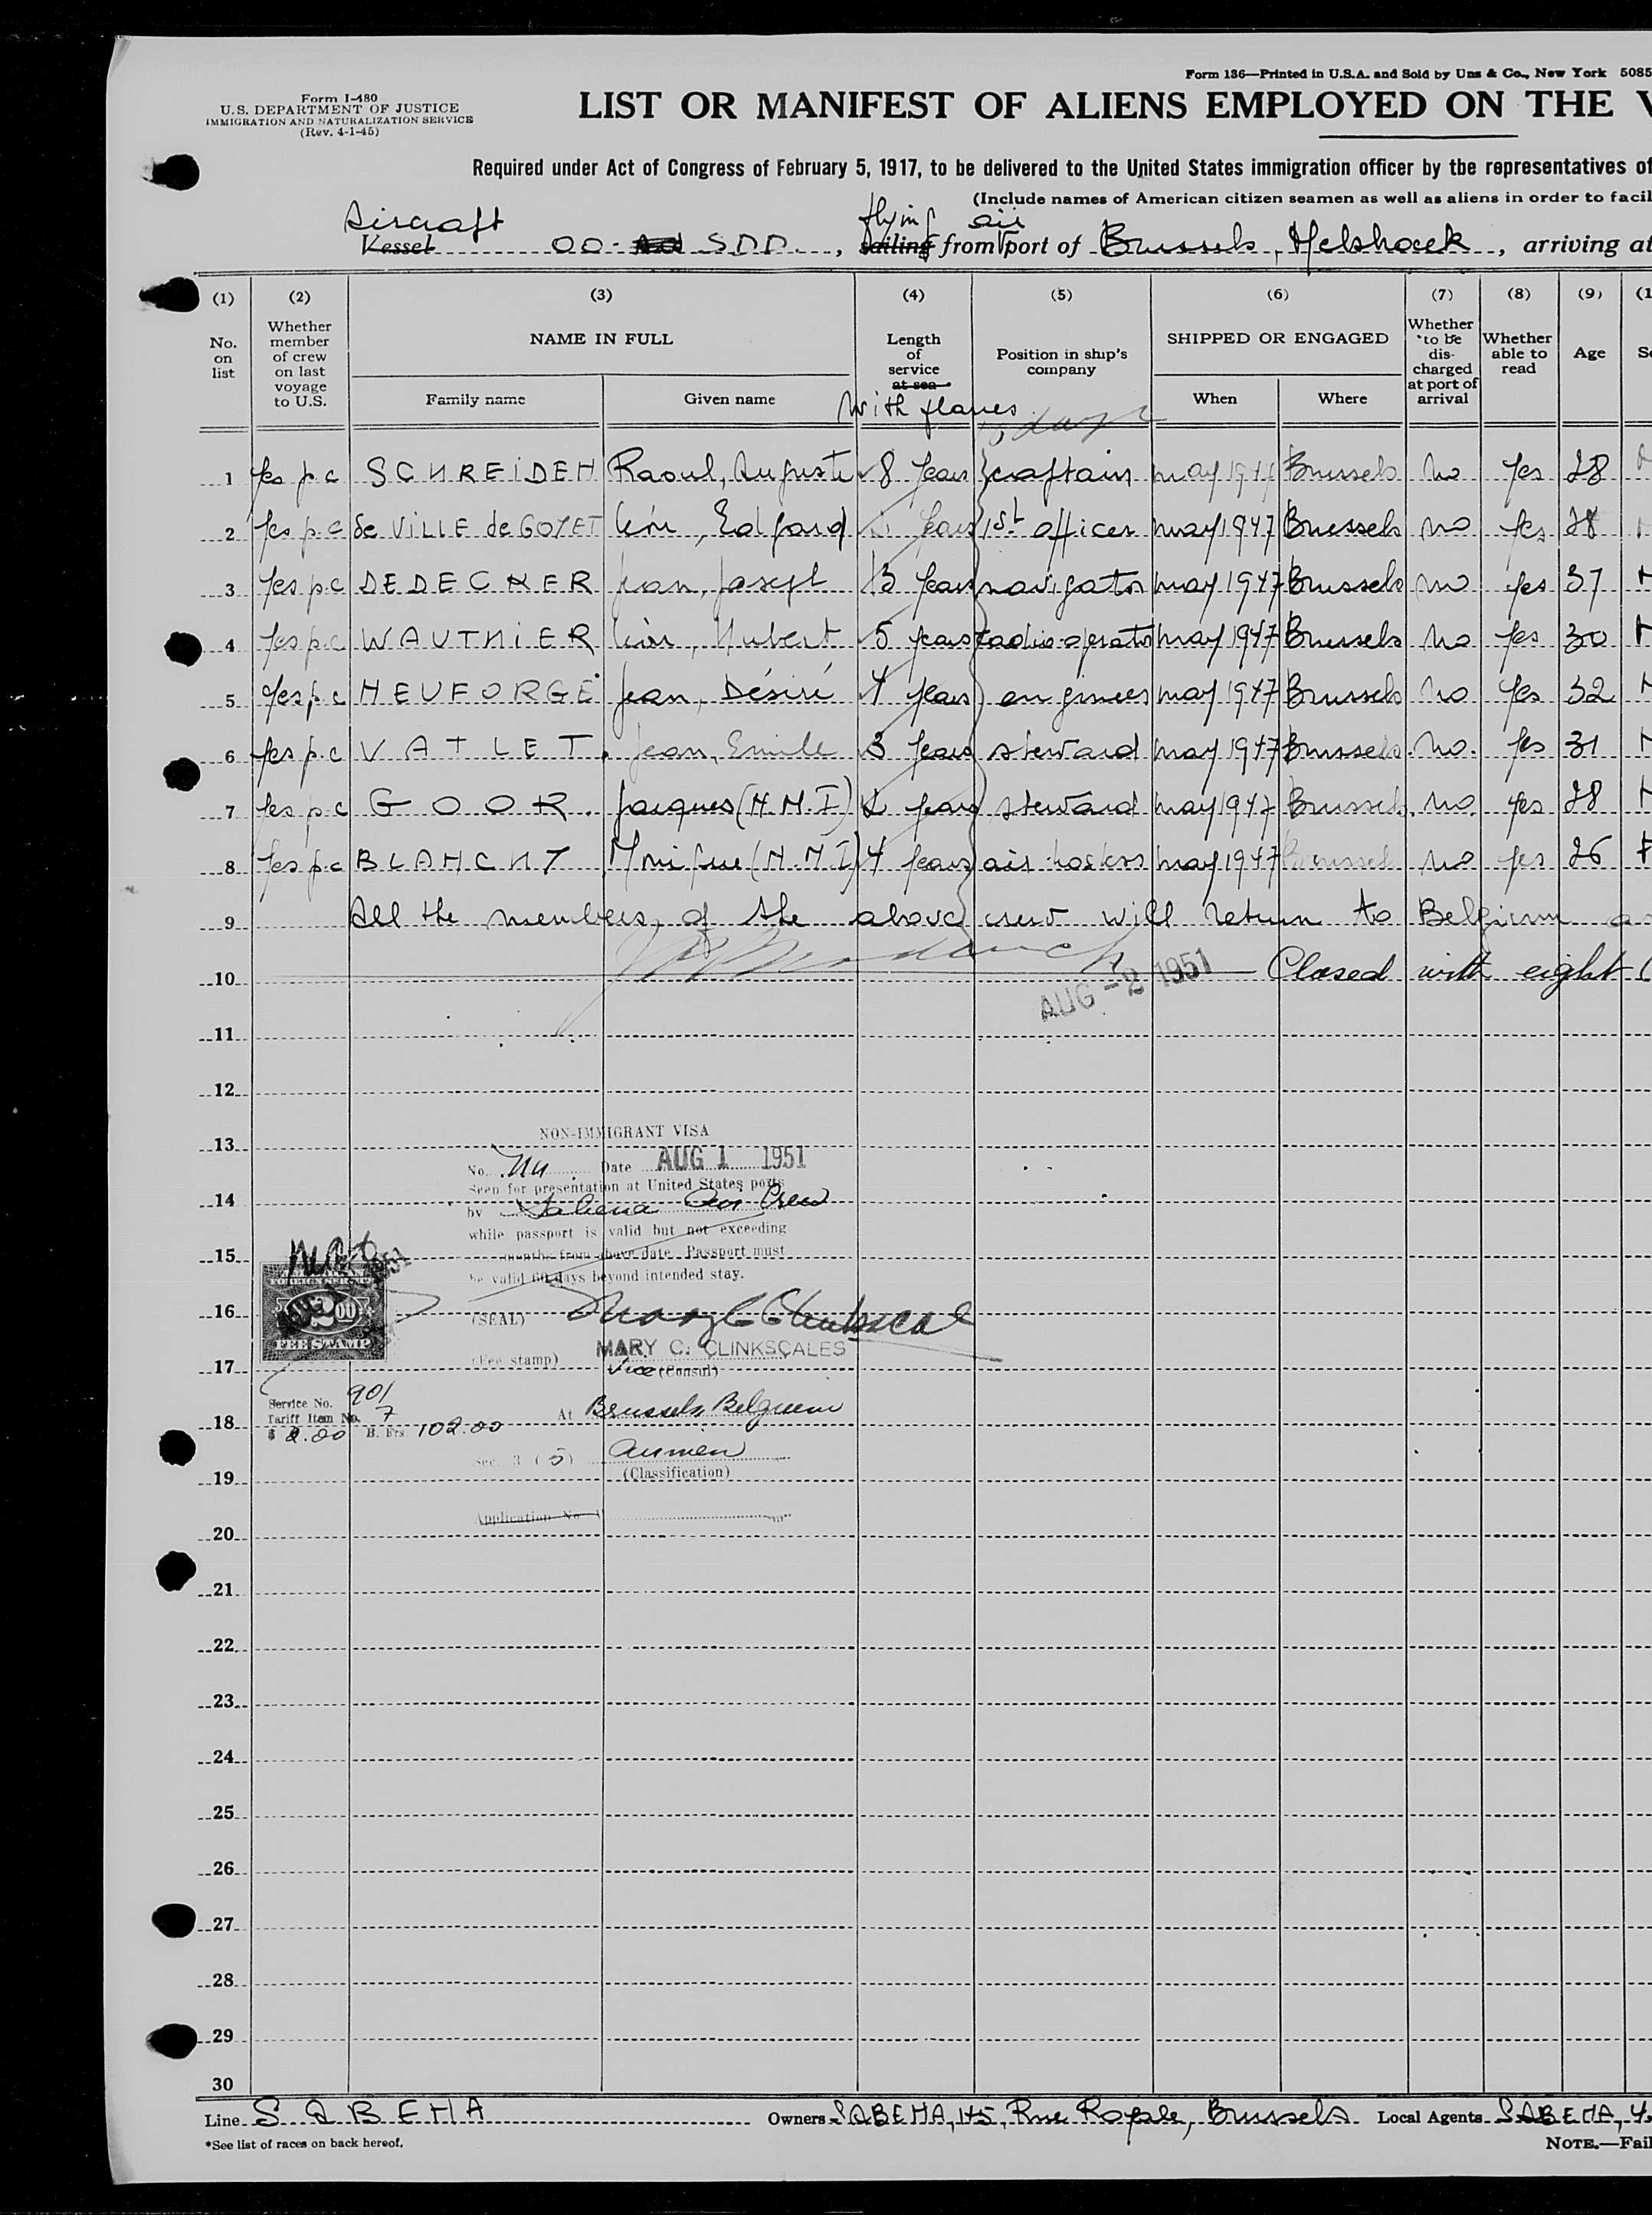 Form 136—Printed in U.S.A. and Sold by Unz & Co., New York 5085
Form I-480
U.S. DEPARTMENT OF JUSTICE
IMMIGRATION AND NATURALIZATION SERVICE
(Rev. 4-1-45)
LIST OR MANIFEST OF ALIENS EMPLOYED ON THE V
Required under Act of Congress of February 5, 1917, to be delivered to the United States immigration officer by the representatives of
(Include names of American citizen seamen as well as aliens in order to facil
Aircraft flying air
Vessel OO- SDD , sailing from port of Brussels, Melsbroek , arriving at
(1) (2) (3) (4) (5) (6) (7) (8) (9) (1
No. on list Whether member of crew on last voyage to U.S. NAME IN FULL Length of service at sea Position in ship's company SHIPPED OR ENGAGED Whether to be discharged at port of arrival Whether able to read Age S
Family name Given name When Where
With planes days
1 yes p.c SCHREIDEN Raoul, Auguste 8 years captain may 194 Brussels no yes 28
2 yes p.c de VILLE de GOYET Léon, Edgard years 1st officer may 1947 Brussels no yes 28
3 yes p.c DEDECKER Jean, Joseph 3 years navigator may 1947 Brussels no yes 37
4 yes p.c WAUTHIER Léon, Hubert 5 years radio-operator may 1947 Brussels no yes 30
5 yes p.c NEUFORGE Jean, Désiré 4 years engineer may 1947 Brussels no yes 32
6 yes p.c VATLET. Jean, Emile 3 years steward may 1947 Brussels no. yes 31
7 yes p.c GOOR. Jacques (N.M.I) years steward may 1947 Brussels no. yes 28
8 yes p.c BLANCHY Monique (N.M.I) 4 years air-hostess may 1947 Brussels no yes 26
9 All the members of the above crew will return to Belgium
10 AUG -2 1951 Closed with eight (
11
12
NON-IMMIGRANT VISA
13
No. Date AUG 1 1951
Seen for presentation at United States ports
14
by Sabena Air Crew
while passport is valid but not exceeding
15
months from above date. Passport must
be valid 60 days beyond intended stay.
FOREIGN SERVICE
2 00
FEE STAMP
16
(SEAL) Mary C Clinkscales
MARY C. CLINKSCALES
17
(Fee stamp) Vice (Consul)
Service No. 901
Tariff Item No. 7
18
At Brussels, Belgium
$ 2.00 B. Frs 102.00
Sec. 3 (5) airmen
19
(Classification)
Application No
20
21
22
23
24
25
26
27
28
29
30
Line SABENA Owners SABENA, 145, Rue Royale, Brussels Local Agents SABENA, 4
*See list of races on back hereof.
NOTE.—Fail